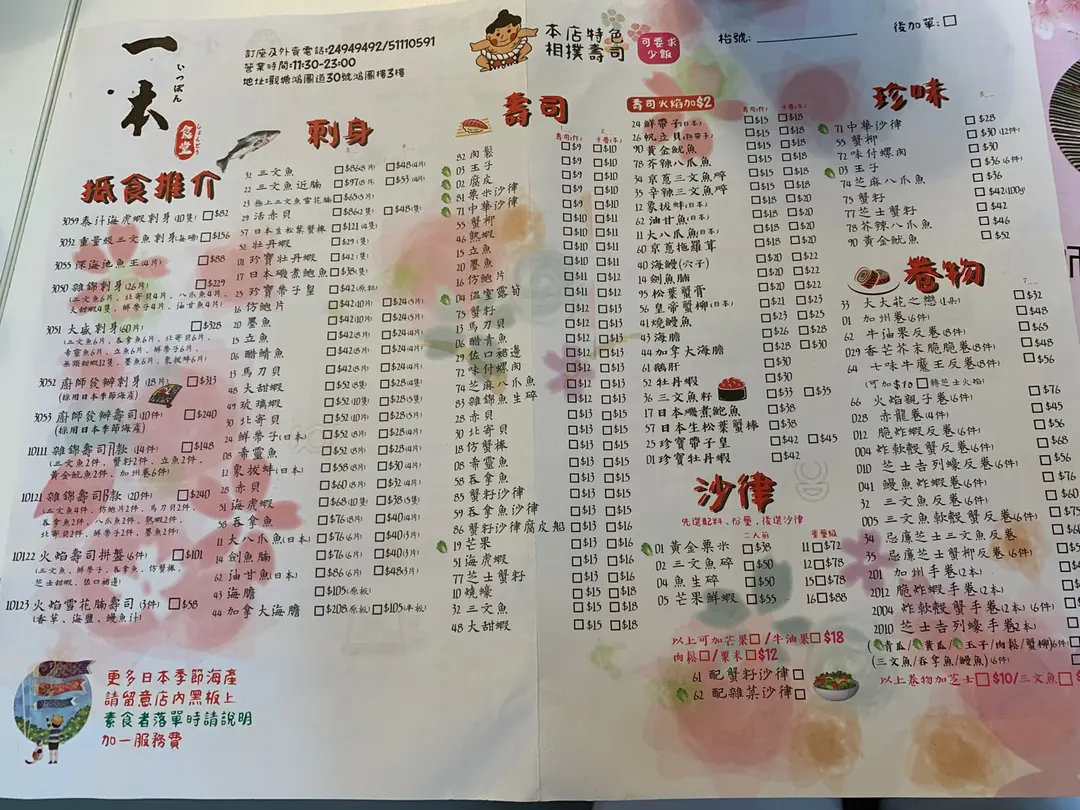 一本
いっぽん
食堂
しょくどう
訂座及外賣電話:24949492/51110591
營業時間:11:30-23:00
地址:觀塘鴻圖道30號鴻圖樓3樓
本店特色
相撲壽司
可要求
少飯
枱號:
後加單:
抵食推介
3059 泰汁海虎蝦刺身(10隻) $82
3032 重量級三文魚刺身 $156
3055 深海池魚王(4片) $88
3050 雜錦刺身(26片) $229
3051 大盛刺身(60片) $328
3052 廚師發辦刺身(18片) $313
(採用日本季節海產)
3053 廚師發辦壽司(10件) $240
(採用日本季節海產)
10111 雜錦壽司A款(14件) $148
(三文魚2件, 蟹籽2件, 立魚2件,
黃金魷魚2件, 加州卷6件)
10121 雜錦壽司B款(20件) $240
10122 火焰壽司拼盤(6件) $101
(三文魚, 鮮帶子, 吞拿魚, 仿蟹棒,
芝士甜蝦, 佐口裙邊)
10123 火焰雪花腩壽司(3件) $58
(香草, 海鹽, 鰻魚汁)
更多日本季節海產
請留意店內黑板上
素食者落單時請說明
加一服務費
刺身
31 三文魚 $86(8片) $48(4片)
22 三文魚近腩 $97(8片) $53(4片)
23 極上三文魚雪花腩 $65(5片)
29 活赤貝 $86(2隻) $48(1隻)
57 日本生松葉蟹棒 $121(4隻)
52 牡丹蝦 $29(1隻)
01 珍寶牡丹蝦 $42(1隻)
17 日本磯煮鮑魚 $38(1隻)
25 珍寶帶子皇 $42(原粒)
16 仿鮑片 $42(10片) $24(5片)
20 墨魚 $42(10片) $24(5片)
15 立魚 $42(8片) $24(4片)
06 醋鯖魚 $42(8片) $24(4片)
13 馬刀貝 $42(8片) $24(4片)
48 大甜蝦 $52(8隻) $28(4隻)
49 玻璃蝦 $52(10隻) $28(5隻)
30 北寄貝 $52(10片) $28(5片)
24 鮮帶子(日本) $52(8片) $28(4片)
08 希靈魚 $52(8片) $28(4片)
12 象拔蚌(日本) $58(8片) $30(4片)
28 赤貝 $60(8片) $32(4片)
51 海虎蝦 $68(10隻) $38(5隻)
58 吞拿魚 $76(8片) $40(4片)
11 大八爪魚(日本) $76(6片) $40(3片)
14 劍魚腩 $76(6片) $40(3片)
62 油甘魚(日本) $86(6片) $48(3片)
43 海膽 $105(原板)
44 加拿大海膽 $208(原板) $105(半板)
壽司
82 肉鬆 $9 $10
03 玉子 $9 $10
02 腐皮 $9 $10
81 粟米沙律 $9 $10
71 中華沙律 $9 $10
55 蟹柳 $10 $11
46 熟蝦 $10 $11
15 立魚 $10 $11
20 墨魚 $10 $11
16 仿鮑片 $11 $12
04 溫室露筍 $11 $12
75 蟹籽 $11 $12
13 馬刀貝 $12 $13
06 醋青魚 $12 $13
29 佐口裙邊 $12 $13
72 味付螺肉 $12 $13
74 芝麻八爪魚 $12 $13
83 雜錦魚生碎 $12 $13
28 赤貝 $13 $15
30 北寄貝 $13 $15
18 仿蟹棒 $13 $15
08 希靈魚 $13 $15
58 吞拿魚 $13 $15
85 蟹籽沙律 $13 $15
59 吞拿魚沙律 $13 $15
86 蟹籽沙律腐皮船 $13 $16
19 芒果 $13 $16
51 海虎蝦 $13 $16
77 芝士蟹籽 $13 $16
10 燒蠔 $13 $16
32 三文魚 $15 $18
48 大甜蝦 $15 $18
壽司火焰加$2
24 鮮帶子(日本) $15 $18
26 帆立貝 $15 $18
90 黃金魷魚 $15 $18
78 芥辣八爪魚 $15 $18
34 京蔥三文魚碎 $15 $18
35 辛辣三文魚碎 $18 $20
12 象拔蚌(日本) $18 $20
62 油甘魚(日本) $18 $20
11 大八爪魚(日本) $18 $20
60 京蔥拖羅茸 $18 $20
40 海鰻(穴子) $20 $22
14 劍魚腩 $20 $22
95 松葉蟹膏 $20 $22
56 皇帝蟹柳(日本) $21 $23
41 燒鰻魚 $23 $25
43 海膽 $26 $28
44 加拿大海膽 $28 $30
61 鵝肝 $30
52 牡丹蝦 $30
36 三文魚籽 $33 $35
17 日本磯煮鮑魚 $38
57 日本生松葉蟹棒 $38
25 珍寶帶子皇 $42 $45
01 珍寶牡丹蝦 $42
沙律
先選配料, 份量, 後選沙律
二人前
01 黃金粟米 $38 11 $72
02 三文魚碎 $50 12 $78
04 魚生碎 $50 15 $78
05 芒果鮮蝦 $55 16 $88
以上可加芒果 /牛油果 $18
肉鬆 /粟米 $12
61 配蟹籽沙律
62 配雜菜沙律
珍味
71 中華沙律 $28
55 蟹柳 $30(12件)
72 味付螺肉 $30
03 玉子 $36(6件)
74 芝麻八爪魚 $36
75 蟹籽 $42(100g)
77 芝士蟹籽 $42
78 芥辣八爪魚 $46
90 黃金魷魚 $52
卷物
33 大大花之戀(1件) $32
01 加州卷(6件) $48
62 牛油果反卷(8件) $65
029 香芒芥末脆脆卷(8件) $48
64 七味牛魔王反卷(8件) $56
(可加$10 轉芝士火焰)
66 火焰親子卷(6件) $76
028 赤龍卷(4件) $45
012 脆炸蝦反卷(6件) $56
004 炸軟殼蟹反卷(6件) $68
010 芝士吉列蠔反卷(6件) $56
041 鰻魚炸蝦卷(6件)
32 三文魚反卷(6件)
005 三文魚軟殼蟹反卷(6件)
34 忌廉芝士三文魚反卷
35 忌廉芝士蟹柳反卷(6件)
201 加州手卷(2本)
2012 脆炸蝦手卷(2本)
2004 炸軟殼蟹手卷(2本)
2010 芝士吉列蠔手卷(2本)
(青瓜/黃瓜/玉子/肉鬆/蟹柳)(6件)
(三文魚/吞拿魚/鰻魚)(6件)
以上卷物加芝士 $10/三文魚